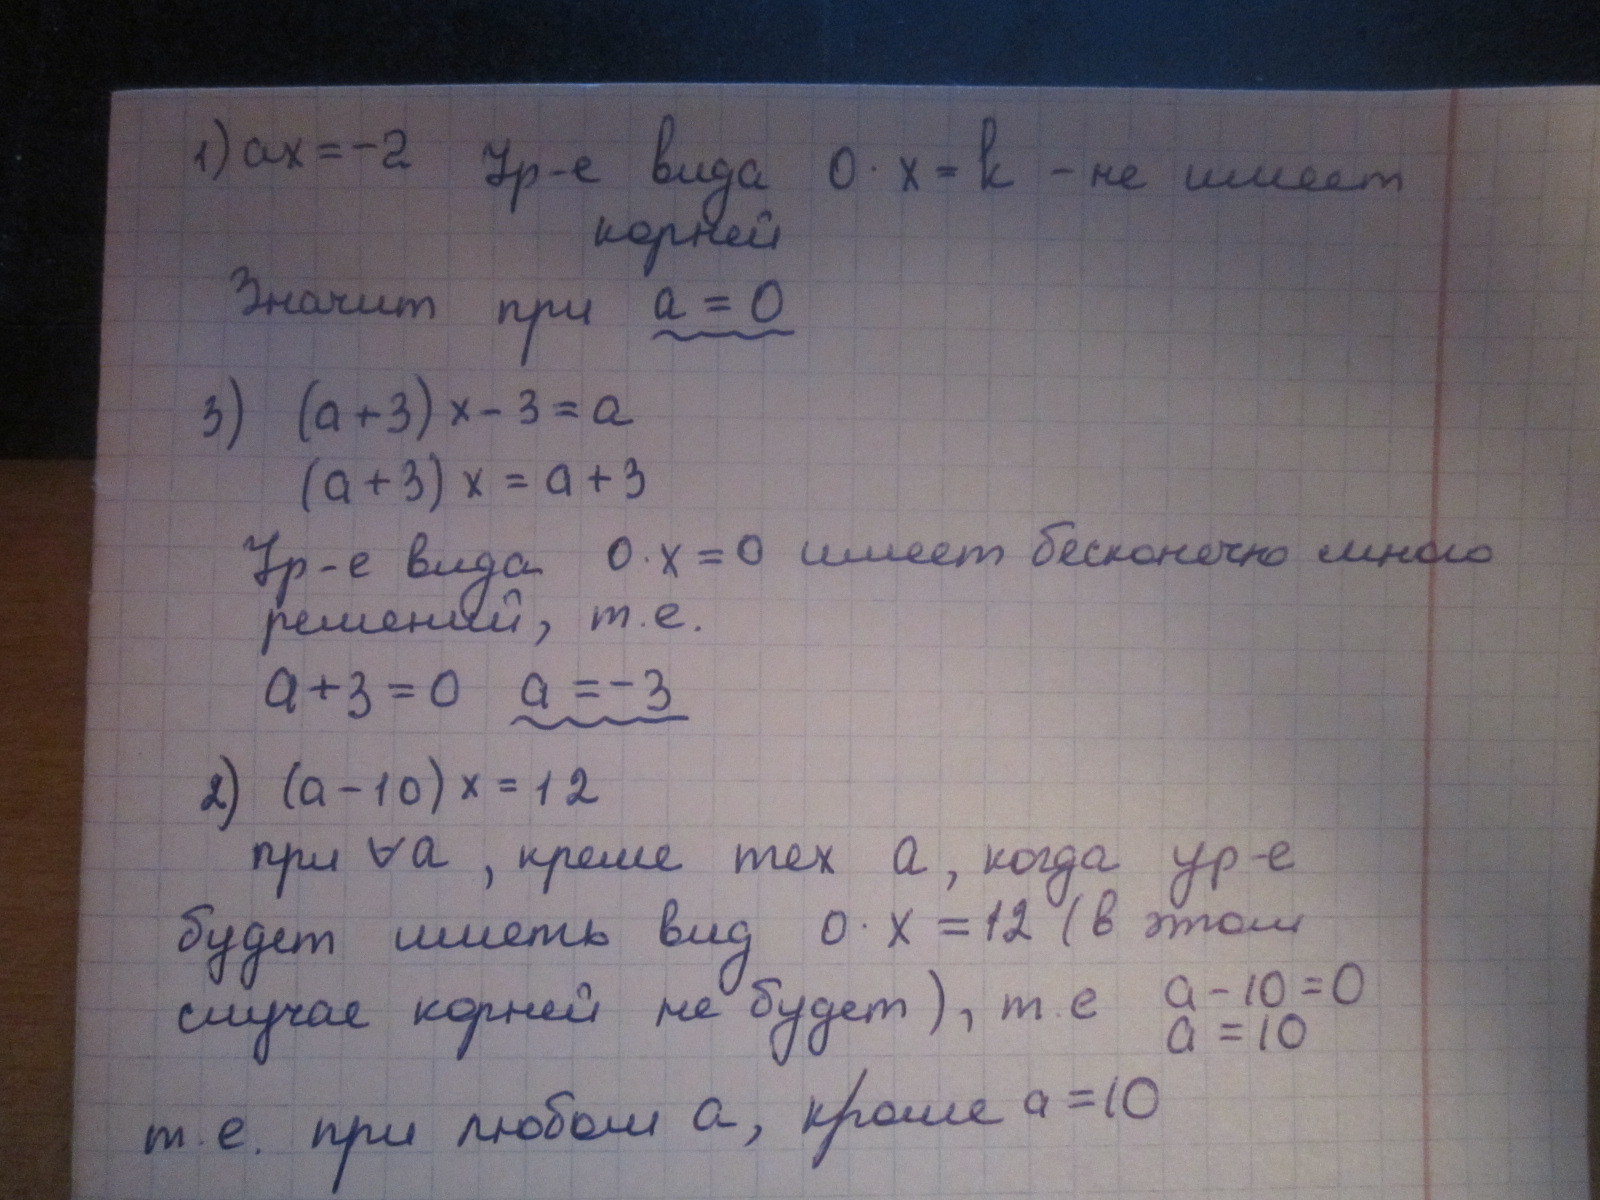 1) ax = -2 Ур-е вида 0 · x = k - не имеет
корней
Значит при a = 0
3) (a+3) x - 3 = a
(a+3) x = a+3
Ур-е вида 0·x = 0 имеет бесконечно много
решений, т.е.
a+3 = 0 a = -3
2) (a - 10) x = 12
при ∀a, кроме тех a, когда ур-е
будет иметь вид 0 · x = 12 (в этом
случае корней не будет), т.е a - 10 = 0
a = 10
т.е. при любом a, кроме a = 10